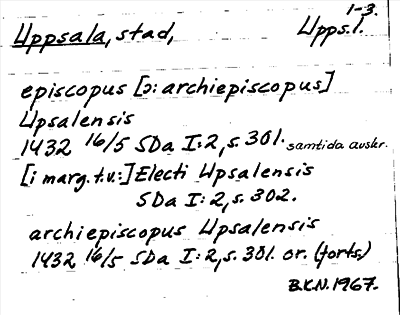 1-3.
Uppsala, stad, Upps.l.
episcopus [ɔ: archiepiscopus]
Upsalensis
1432 16/5 SDa I:2, s. 301. samtida avskr.
[i marg. t.v.:] Electi Upsalensis
SDa I:2, s. 302.
archiepiscopus Upsalensis
1432 16/5 SDa I:2, s. 301. or. (forts)
B.K.N. 1967.